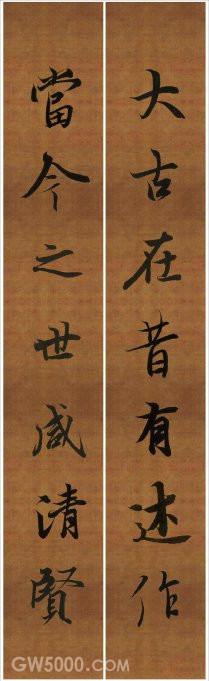 大古在昔有述作
當今之世咸清賢
GW5000.COM